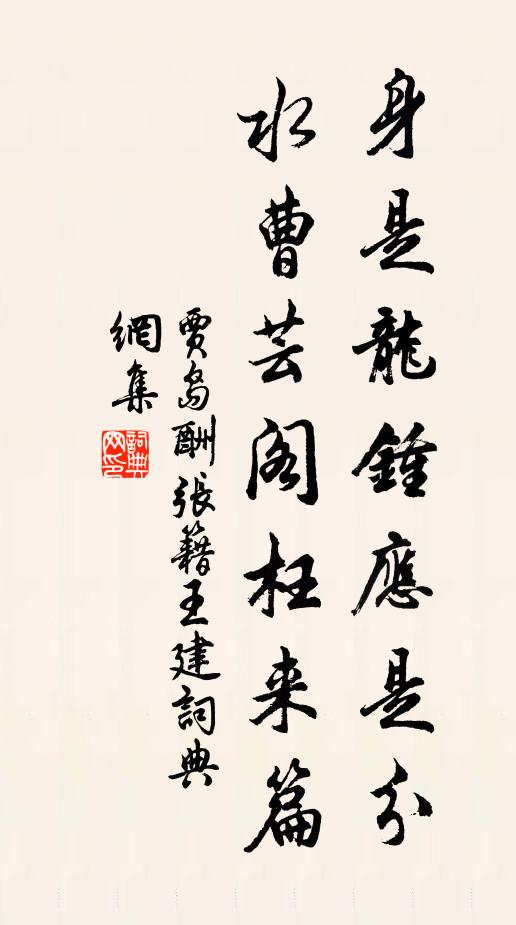 身是龍鍾應是分
水曹芸阁枉来篇
賈島酬張籍王建詞典
網集
詞典網印